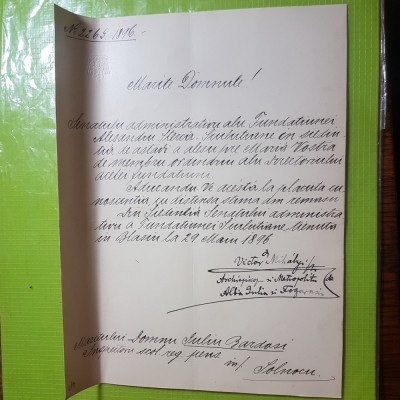 Nr. 2265. 1896.
Marite Domnule!
Senatulu administrativu alu Fundatiunei
Alesandru Sterca Siulutiane in siedin-
de astadi a alesu pre Maria Vostra
de membru ordinariu alu Senatului
acelei Fundatiuni.
Aducandu Ve acésta la placuta cu-
noscintia, cu distinsa stima din remanu
Din Siedintia Senatului administra-
tivu a Fundatiunei Siulutiane tienuta
in Blasiu la 29 Maiu 1896.
Dr. Victor Mihályi
Archiepiscop si Metropolitu de
Alba Julia si Fogarasiu
Maritului Domnu Iuliu Bardosi
Inspectoru scol. reg. pens.
in